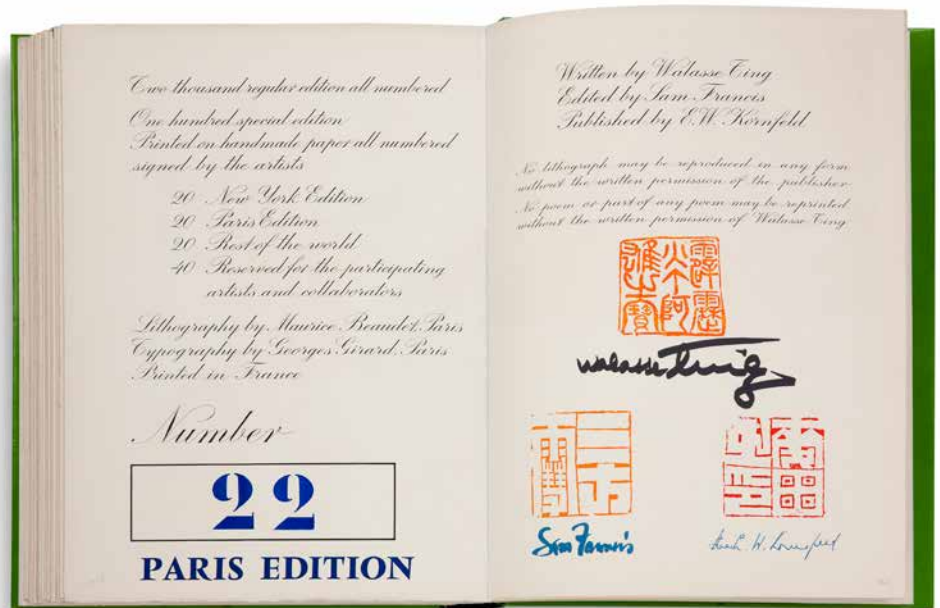 Two thousand regular edition all numbered
One hundred special edition
Printed on handmade paper all numbered
signed by the artists
20 New York Edition
20 Paris Edition
20 Rest of the world
40 Reserved for the participating
artists and collaborators
Lithography by Maurice Beaudet, Paris
Typography by Georges Girard, Paris
Printed in France
Number
22
PARIS EDITION
Written by Walasse Ting
Edited by Sam Francis
Published by E.W. Kornfeld
No lithograph may be reproduced in any form
without the written permission of the publisher
No poem or part of any poem may be reprinted
without the written permission of Walasse Ting
walasse Ting
Sam Francis